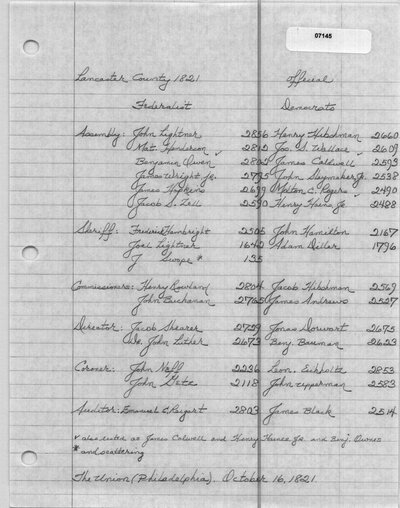 07145
Lancaster County 1821 Official
Federalist Democrats
Assembly: John Lightner 2856 Henry Hibshman 2660
Matt. Henderson 2812 Jos. S. Wallace 2609
Benjamin Owen ✓ 2802 James Caldwell ✓ 2593
James Wright Jr. 2795 John Slaymaker Jr. 2538
James Hopkins 2699 Molton C. Rogers ✓ 2490
Jacob S. Zell 2590 Henry Hains Jr. 2488
Sheriff: Frederick Hambright 2505 John Hamilton 2167
Joel Lightner 1642 Adam Diller 1796
J Swope * 135
Commissioners: Henry Rowland 2804 Jacob Hibshman 2569
John Buchanan 2765 James Andrews 2527
Director: Jacob Shearer 2729 Jonas Dorwart 2675
Do. John Lither 2673 Benj. Bauman 2623
Coroner: John Neff 2236 Leon. Eichholtz 2853
John 2118 John 2583
Auditor: Emanuel C. Reigart 2803 James Black 2514
✓ also listed as James Colwell and Henry Haines Jr. and Benj. Owens
* and scattering
The Union (Philadelphia). October 16, 1821.